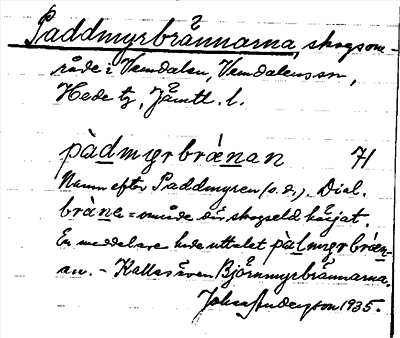 Paddmyrbrännarna, skogsom-
råde i Vemdalen, Vemdalens sn,
Hede tg, Jämtl. l.
pàdmyrbrænan 71
Namn efter Paddmyren (o. d.). Dial.
bräne = område där skogseld härjat.
En meddelare hade uttalet pàlmyrbræn-
an. - Kallas även Björnmyrbrännarna.
Johan Anderson 1935.